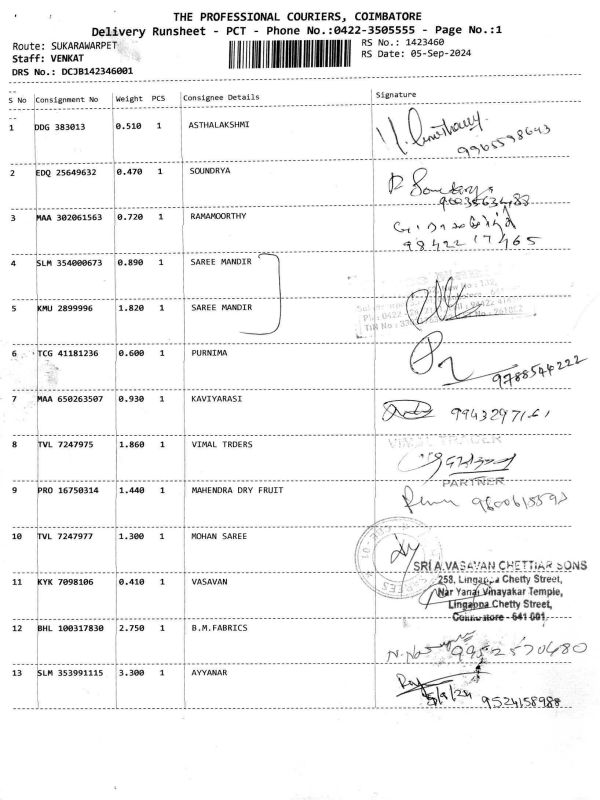 THE PROFESSIONAL COURIERS, COIMBATORE
Delivery Runsheet - PCT - Phone No.:0422-3505555 - Page No.:1
Route: SUKARAWARPET
RS No.: 1423460
Staff: VENKAT
RS Date: 05-Sep-2024
DRS No.: DCJB142346001
S No Consignment No Weight PCS Consignee Details Signature
1 DDG 383013 0.510 1 ASTHALAKSHMI
2 EDQ 25649632 0.470 1 SOUNDRYA
3 MAA 302061563 0.720 1 RAMAMOORTHY
9842217465
4 SLM 354000673 0.890 1 SAREE MANDIR
5 KMU 2899996 1.820 1 SAREE MANDIR
6 TCG 41181236 0.600 1 PURNIMA
9788544222
7 MAA 650263507 0.930 1 KAVIYARASI
8 TVL 7247975 1.860 1 VIMAL TRDERS
VIMAL TRADER
PARTNER
9 PRO 16750314 1.440 1 MAHENDRA DRY FRUIT
10 TVL 7247977 1.300 1 MOHAN SAREE
SRI A.VASAVAN CHETTIAR SONS
11 KYK 7098106 0.410 1 VASAVAN
258, Lingappa Chetty Street,
Nar Yanai Vinayakar Temple,
Lingappa Chetty Street,
Coimbatore - 641 001.
12 BHL 100317830 2.750 1 B.M.FABRICS
9952570480
13 SLM 353991115 3.300 1 AYYANAR
5/9/24 9524158988